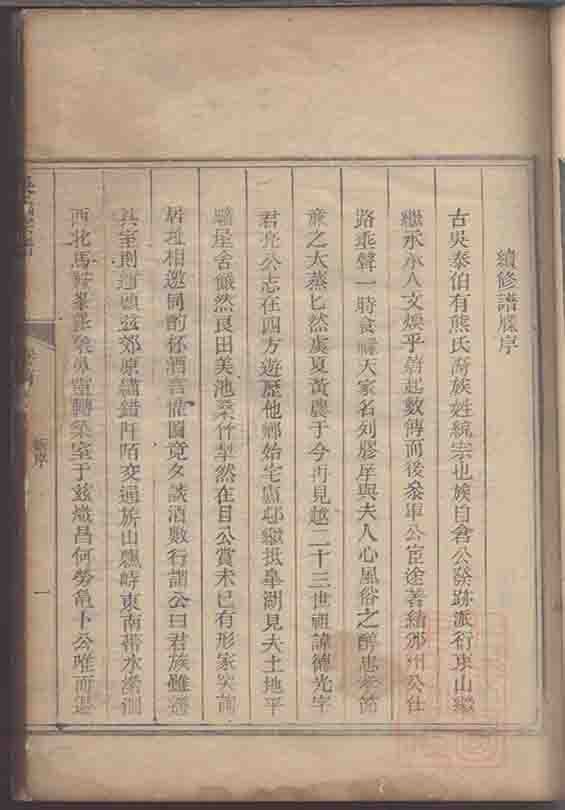 續修譜牒序
古吳泰伯有熊氏裔族姓統宗也族自會公發跡派衍東山繼
繼承承人文煥乎蔚起數傳而後叅軍公宦途著績邠州公仕
路乖聲一時食祿天家名列膠庠與夫人心風俗之醇忠孝節
之大蒸匕然虞夏黃農于今再見越二十三世祖諱德光字
君亮公志在四方遊歷他鄉始宅盧邨繼抵皋湖見夫土地平
曠屋舍儼然良田美池桑竹犖然在目公賞未已有形家
居社相邀同酌杯酒言懽圖竟久談酒數行謂公曰君族雖
共室則茲郊原繡錯阡陌交通旂山聳峙東南帶水瀠洄
西北馬鞍轉築室于茲熾昌何勞亀卜公唯而退
序
一